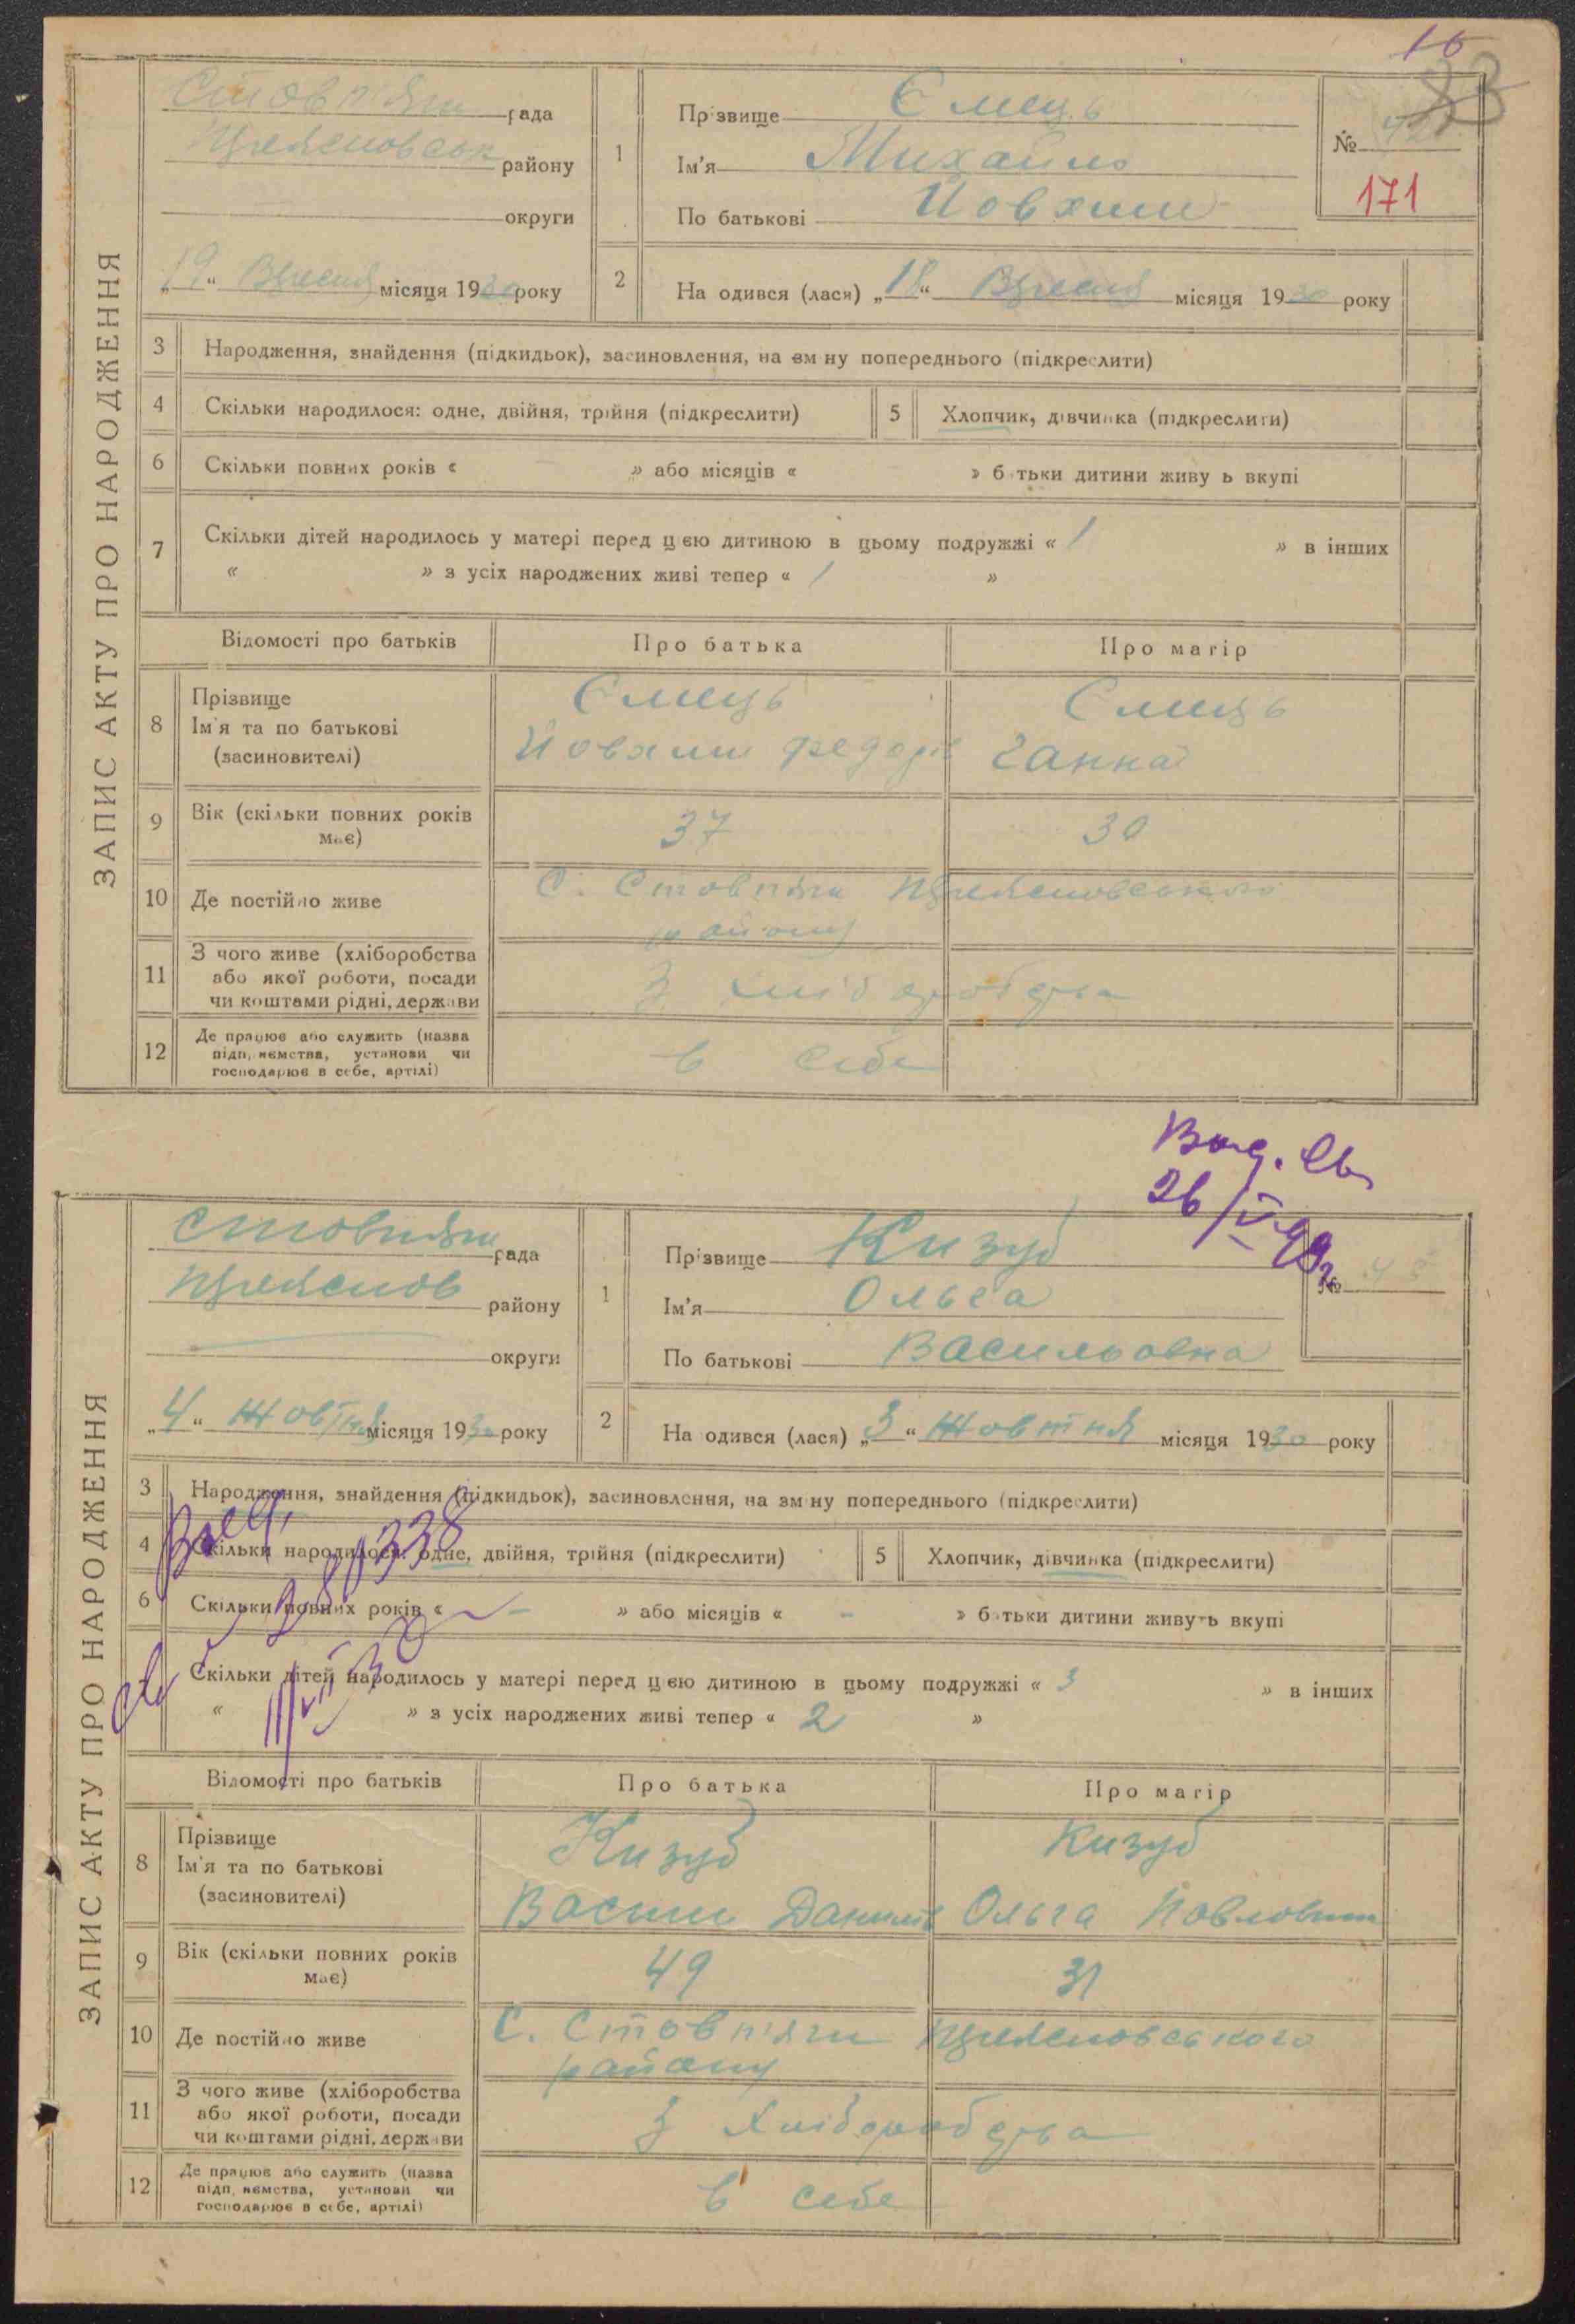 16
33
ЗАПИС АКТУ ПРО НАРОДЖЕННЯ
Стовпяги рада
району
округи
"19" Вересня місяця 1930 року
1
Прізвище Ємець
Ім'я Михайло
По батькові Йовхим
№
171
2
На одився (лася) "18" Вересня місяця 1930 року
3 Народження, знайдення (підкидьок), засиновлення, на зм ну попереднього (підкреслити)
4 Скільки народилося: одне, двійня, трійня (підкреслити)
5 Хлопчик, дівчинка (підкреслити)
6 Скільки повних років « » або місяців « » батьки дитини живу ь вкупі
7 Скільки дітей народилось у матері перед цією дитиною в цьому подружжі « 1 » в інших
« » з усіх народжених живі тепер « 1 »
Відомості про батьків Про батька Про матір
8 Прізвище Ємець Ємець
Ім'я та по батькові Йовхим Федорів Ганна
(засиновителі)
9 Вік (скільки повних років має) 37 30
10 Де постійно живе С. Стовпяги
району
11 З чого живе (хліборобства або якої роботи, посади чи коштами рідні, держави З хліборобства
12 Де працює або служить (назва підприємства, установи чи господарює в себе, артілі) в себе
Выд. св
26/V-49г
ЗАПИС АКТУ ПРО НАРОДЖЕННЯ
Стовпяги рада
району
округи
"4" Жовтня місяця 1930 року
1
Прізвище Кизуб
Ім'я Ольга
По батькові Васильовна
№ 45
2
На одився (лася) "3" Жовтня місяця 1930 року
3 Народження, знайдення (підкидьок), засиновлення, на зм ну попереднього (підкреслити)
4 Скільки народилося: одне, двійня, трійня (підкреслити)
5 Хлопчик, дівчинка (підкреслити)
6 Скільки повних років « - » або місяців « - » батьки дитини живуть вкупі
Скільки дітей народилось у матері перед цією дитиною в цьому подружжі « 3 » в інших
« » з усіх народжених живі тепер « 2 »
Відомості про батьків Про батька Про матір
8 Прізвище Кизуб Кизуб
Ім'я та по батькові Васил Данилів Ольга Павловна
(засиновителі)
9 Вік (скільки повних років має) 49 31
10 Де постійно живе С. Стовпяги
району
11 З чого живе (хліборобства або якої роботи, посади чи коштами рідні, держави З Хліборобства
12 Де працює або служить (назва підприємства, установи чи господарює в себе, артілі) в себе